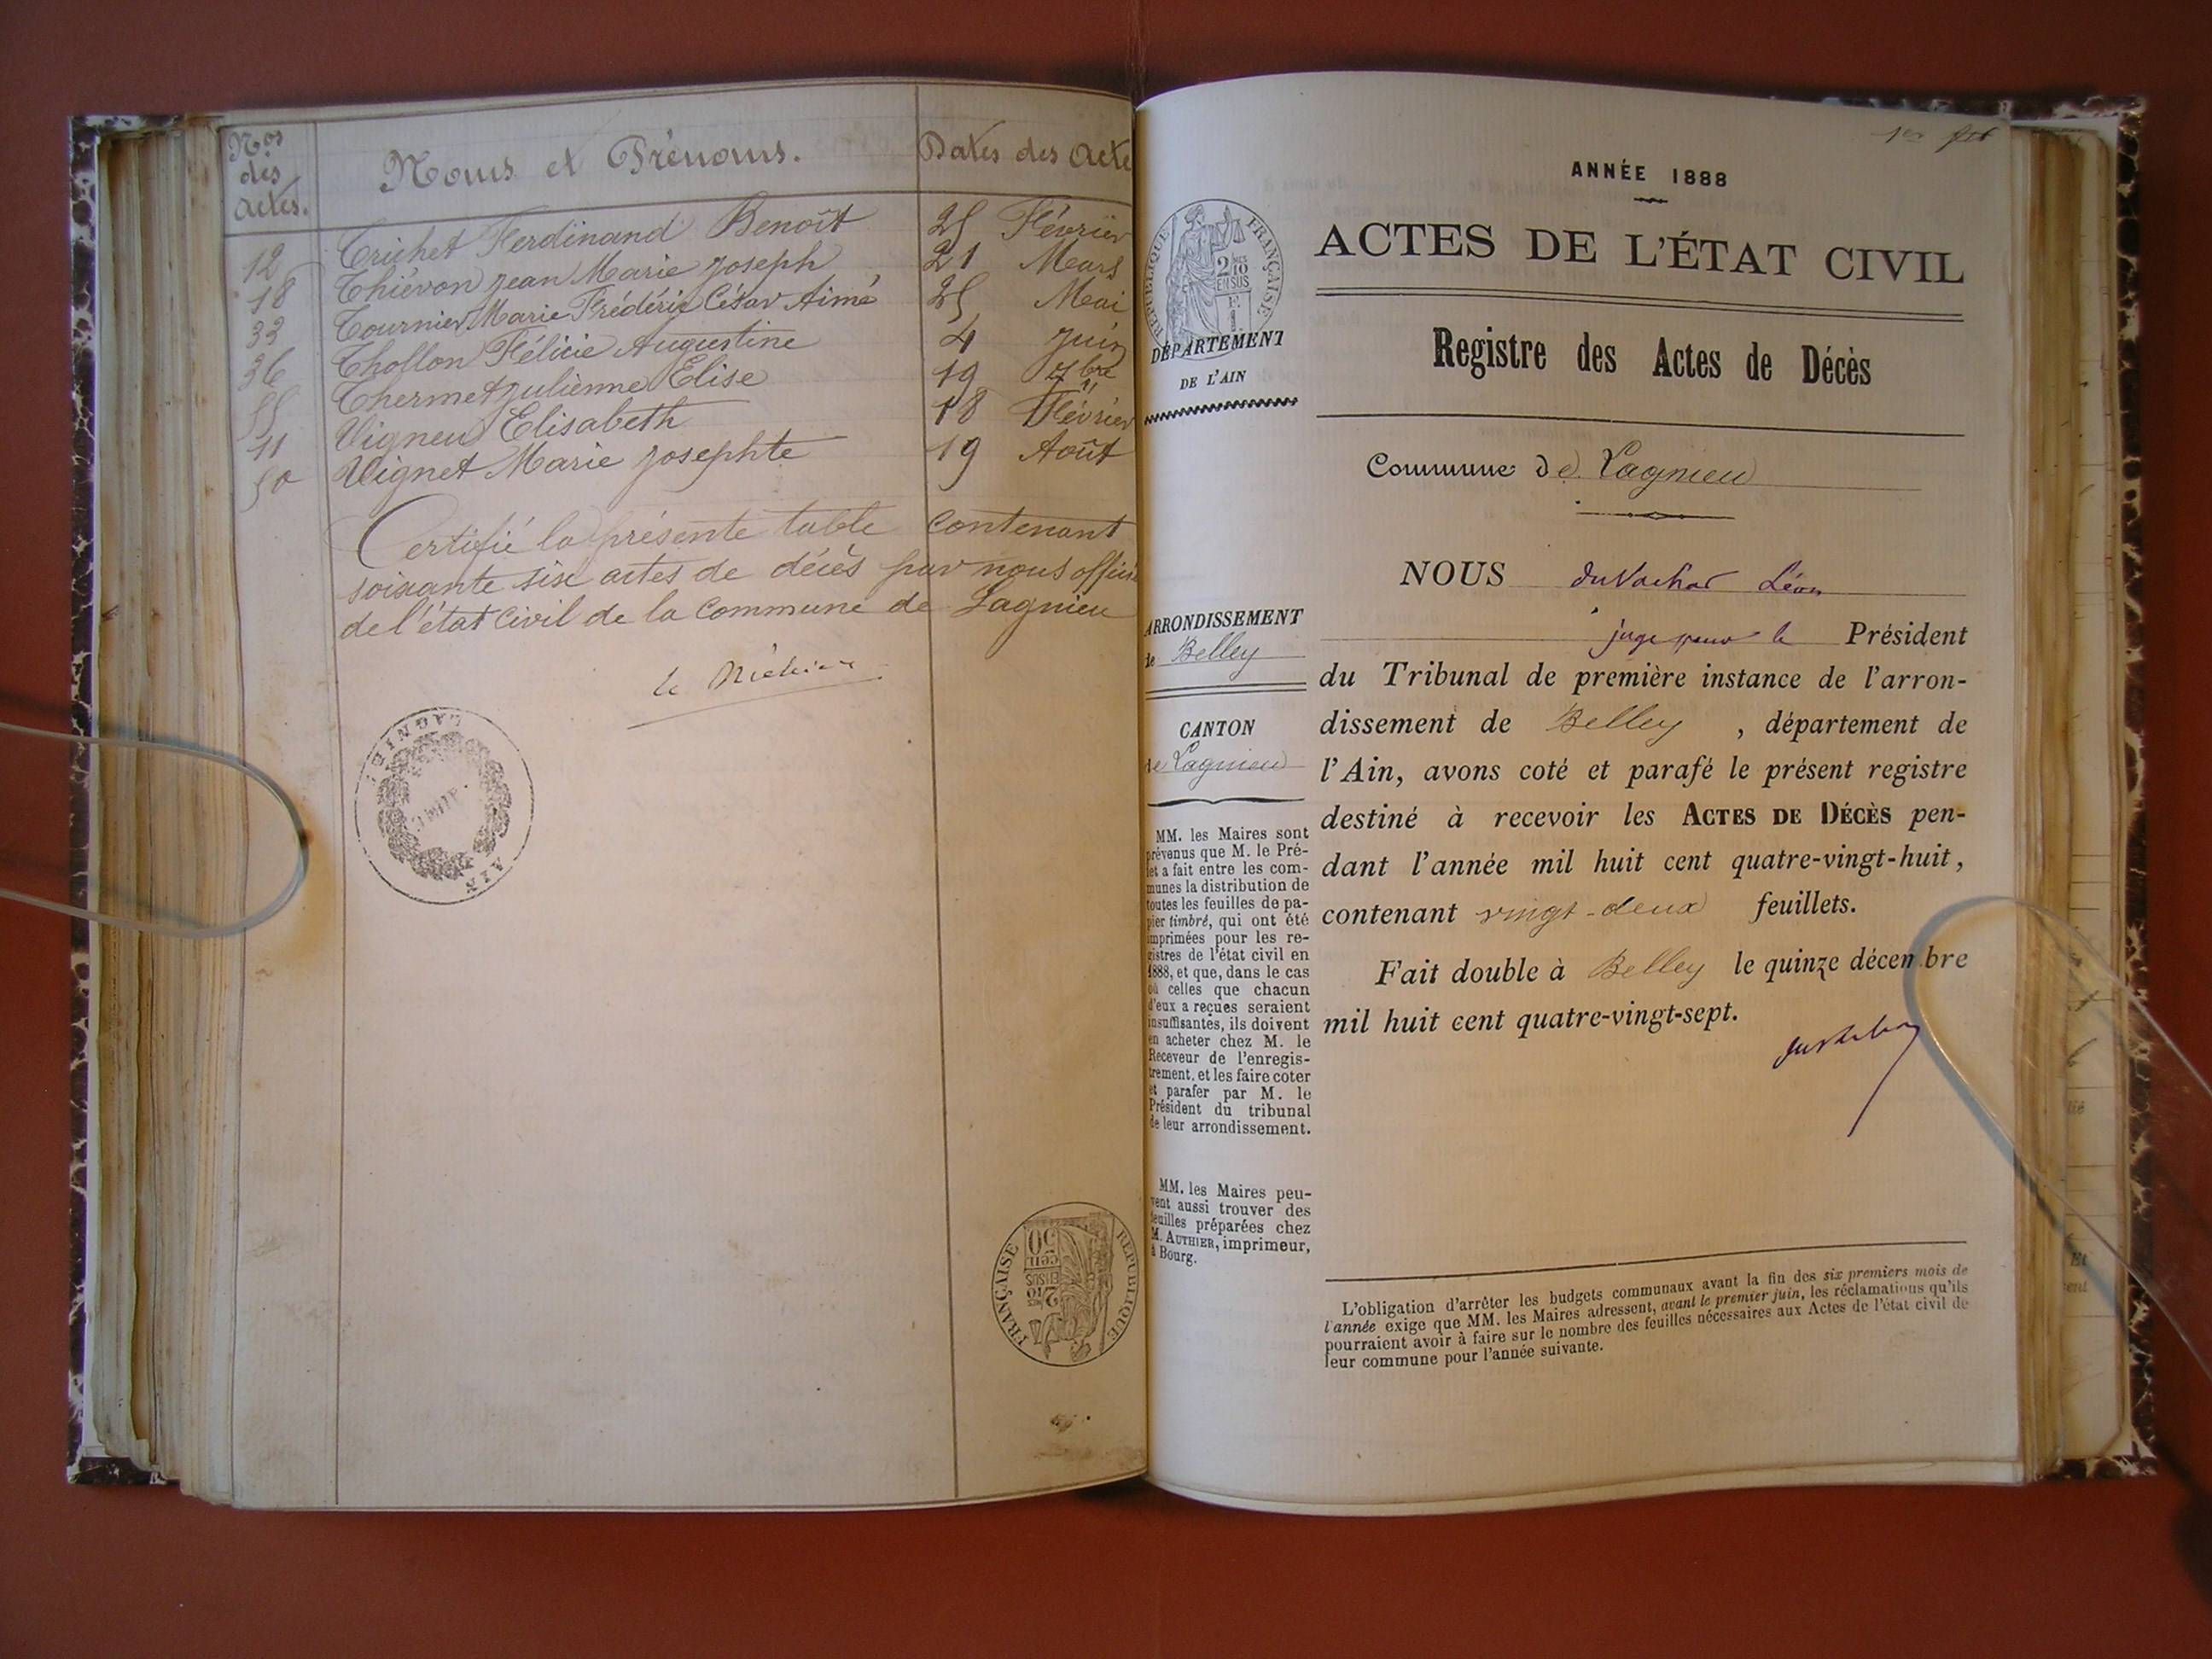 Nos
des
Actes.
Noms et Prénoms.
Dates des Acte
12 Trichet Ferdinand Benoît 25 Février
18 Thiévon Jean Marie Joseph 21 Mars
33 Tournier Marie Frédéric César Aimé 25 Mai
36 Thollon Félicie Augustine 4 Juin
55 Thermet Julienne Elise 19 7bre
11 Vigneu Elisabeth 18 Février
50 Vignet Marie Josephte 19 Août
Certifié la présente table contenant
soixante six actes de décès par nous officie
de l'état civil de la commune de Lagnieu
LAGNIEU
MAIRIE
AIN
RÉPUBLIQUE FRANÇAISE
50
cen
2/10
EN SUS
1er
ANNÉE 1888
ACTES DE L'ÉTAT CIVIL
Registre des Actes de Décès
Commune de Lagnieu
NOUS Duvachat Léon
juge pour le Président
du Tribunal de première instance de l'arron-
dissement de Belley, département de
l'Ain, avons coté et parafé le présent registre
destiné à recevoir les ACTES DE DÉCÈS pen-
dant l'année mil huit cent quatre-vingt-huit,
contenant vingt-deux feuillets.
Fait double à Belley le quinze décembre
mil huit cent quatre-vingt-sept.
L'obligation d'arrêter les budgets communaux avant la fin des six premiers mois de
l'année exige que MM. les Maires adressent, avant le premier juin, les réclamations qu'ils
pourraient avoir à faire sur le nombre des feuilles nécessaires aux Actes de l'état civil de
leur commune pour l'année suivante.
RÉPUBLIQUE FRANÇAISE
2/10
EN SUS
DÉPARTEMENT
DE L'AIN
ARRONDISSEMENT
de Belley
CANTON
de Lagnieu
MM. les Maires sont
prévenus que M. le Pré-
fet a fait entre les com-
munes la distribution de
toutes les feuilles de pa-
pier timbré, qui ont été
imprimées pour les re-
gistres de l'état civil en
1888, et que, dans le cas
où celles que chacun
d'eux a reçues seraient
insuffisantes, ils doivent
en acheter chez M. le
Receveur de l'enregis-
trement, et les faire coter
et parafer par M. le
Président du tribunal
de leur arrondissement.
MM. les Maires peu-
vent aussi trouver des
feuilles préparées chez
M. AUTHIER, imprimeur,
à Bourg.